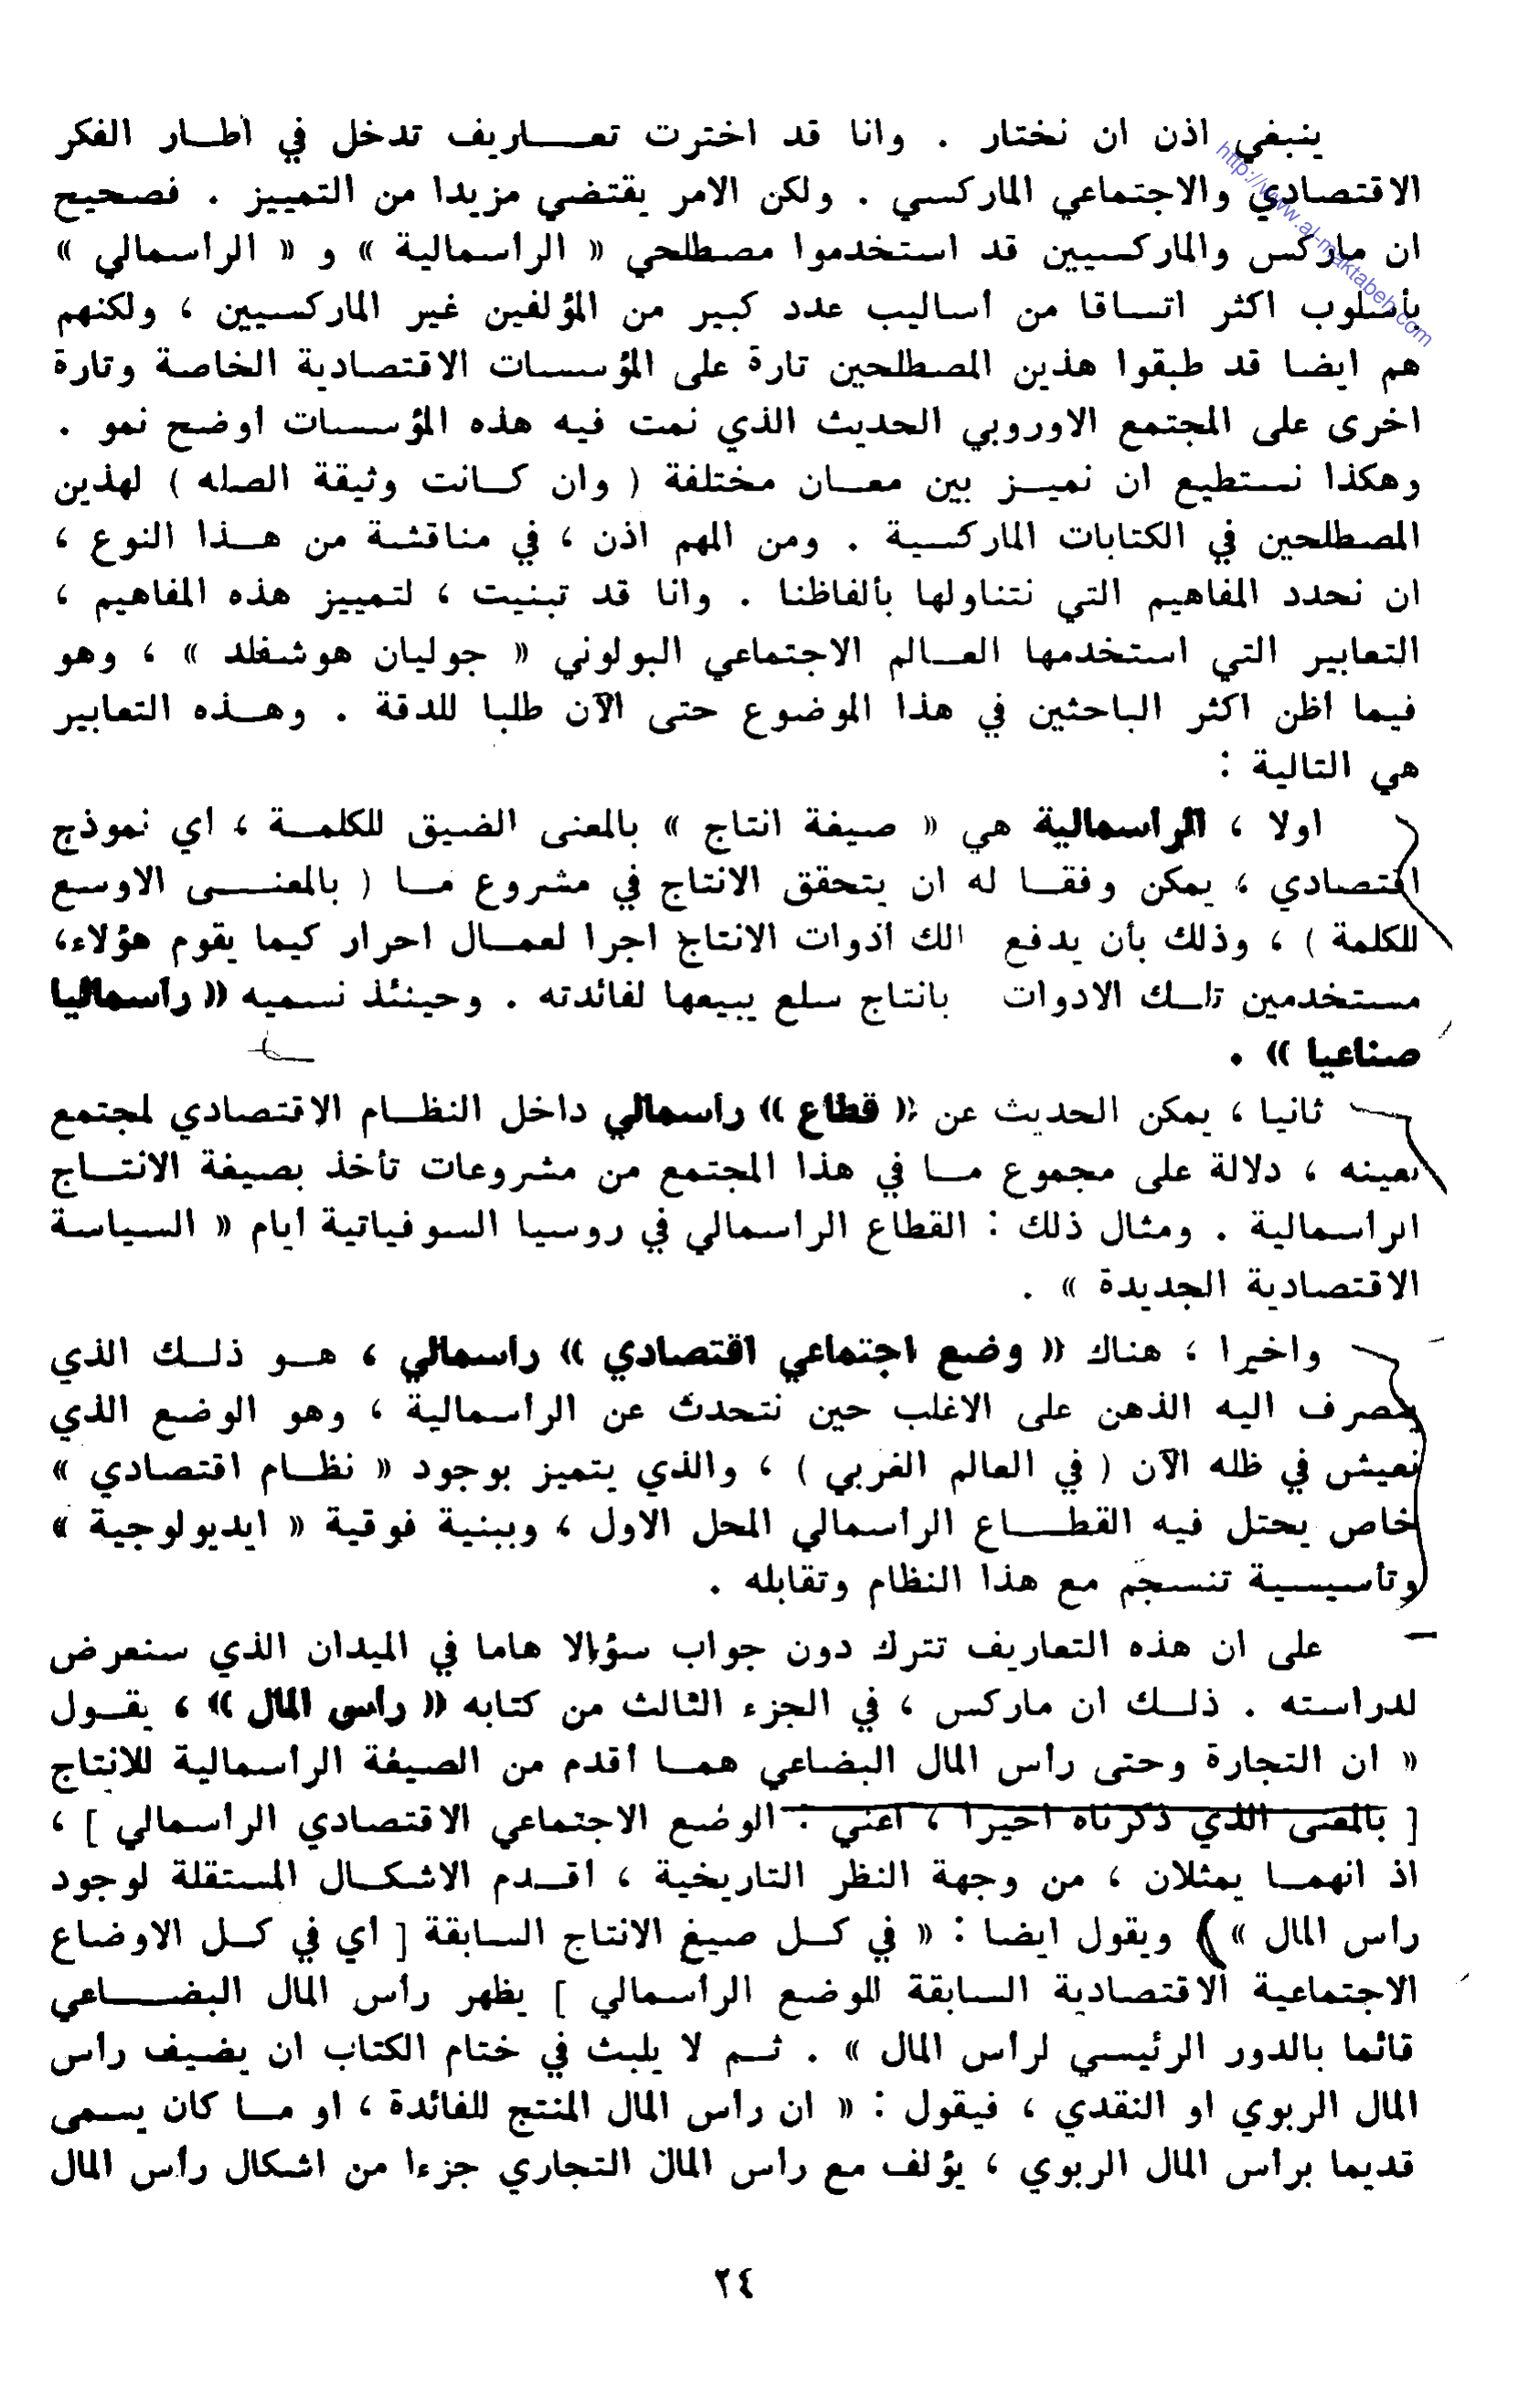 ينبغي اذن ان نختار . وانا قد اخترت تعـــاريف تدخل في اطــار الفكر
الاقتصادي والاجتماعي الماركسي . ولكن الامر يقتضي مزيدا من التمييز . فصحيح
ان ماركس والماركسيين قد استخدموا مصطلحي « الرأسمالية » و « الرأسمالي »
بأسلوب اكثر اتساقا من أساليب عدد كبير من المؤلفين غير الماركسيين ، ولكنهم
هم ايضا قد طبقوا هذين المصطلحين تارة على المؤسسات الاقتصادية الخاصة وتارة
اخرى على المجتمع الاوروبي الحديث الذي نمت فيه هذه المؤسسات أوضح نمو .
وهكذا نستطيع ان نميــز بين معــان مختلفة ( وان كــانت وثيقة الصله ) لهذين
المصطلحين في الكتابات الماركسية . ومن المهم اذن ، في مناقشة من هــذا النوع ،
ان نحدد المفاهيم التي نتناولها بألفاظنا . وأنا قد تبنيت ، لتمييز هذه المفاهيم ،
التعابير التي استخدمها العــالم الاجتماعي البولوني « جوليان هوشفلد » ، وهو
فيما أظن اكثر الباحثين في هذا الموضوع حتى الآن طلبا للدقة . وهــذه التعابير
هي التالية :
اولا ، الرأسمالية هي « صيغة انتاج » بالمعنى الضيق للكلمــة ، أي نموذج
اقتصادي ، يمكن وفقــا له ان يتحقق الانتاج في مشروع مــا ( بالمعنــى الاوسع
للكلمة ) ، وذلك بأن يدفع الك أدوات الانتاج أجرا لعمــال احرار كيما يقوم هؤلاء،
مستخدمين تلــك الادوات بانتاج سلع يبيعها لفائدته . وحينئذ نسميه « رأسماليا
صناعيا » .
ثانيا ، يمكن الحديث عن « قطاع » رأسمالي داخل النظــام الاقتصادي لمجتمع
بعينه ، دلالة على مجموع مــا في هذا المجتمع من مشروعات تأخذ بصيغة الانتــاج
الرأسمالية . ومثال ذلك : القطاع الرأسمالي في روسيا السوفياتية أيام « السياسة
الاقتصادية الجديدة » .
واخيرا ، هناك « وضع اجتماعي اقتصادي » رأسمالي ، هــو ذلــك الذي
ينصرف اليه الذهن على الاغلب حين نتحدث عن الرأسمالية ، وهو الوضع الذي
نعيش في ظله الآن ( في العالم الغربي ) ، والذي يتميز بوجود « نظــام اقتصادي »
خاص يحتل فيه القطـــاع الرأسمالي المحل الاول ، وببنية فوقية « ايديولوجية »
وتأسيسية تنسجم مع هذا النظام وتقابله .
على ان هذه التعاريف تترك دون جواب سؤالا هاما في الميدان الذي سنعرض
لدراسته . ذلــك ان ماركس ، في الجزء الثالث من كتابه « رأس المال » ، يقــول
« ان التجارة وحتى رأس المال البضاعي همــا أقدم من الصيغة الرأسمالية للانتاج
[ بالمعنى الذي ذكرناه اخيرا ، أعني : الوضع الاجتماعي الاقتصادي الرأسمالي ] ،
اذ انهمــا يمثلان ، من وجهة النظر التاريخية ، أقــدم الاشكــال المستقلة لوجود
رأس المال » ) ويقول ايضا : « في كــل صيغ الانتاج السابقة [ أي في كــل الاوضاع
الاجتماعية الاقتصادية السابقة للوضع الرأسمالي ] يظهر رأس المال البضـــاعي
قائما بالدور الرئيسي لرأس المال » . ثــم لا يلبث في ختام الكتاب ان يضيف رأس
المال الربوي او النقدي ، فيقول : « ان رأس المال المنتج للفائدة ، او مــا كان يسمى
قديما برأس المال الربوي ، يؤلف مع رأس المال التجاري جزءا من اشكال رأس المال
٢٤
http://www.al-maktabeh.com